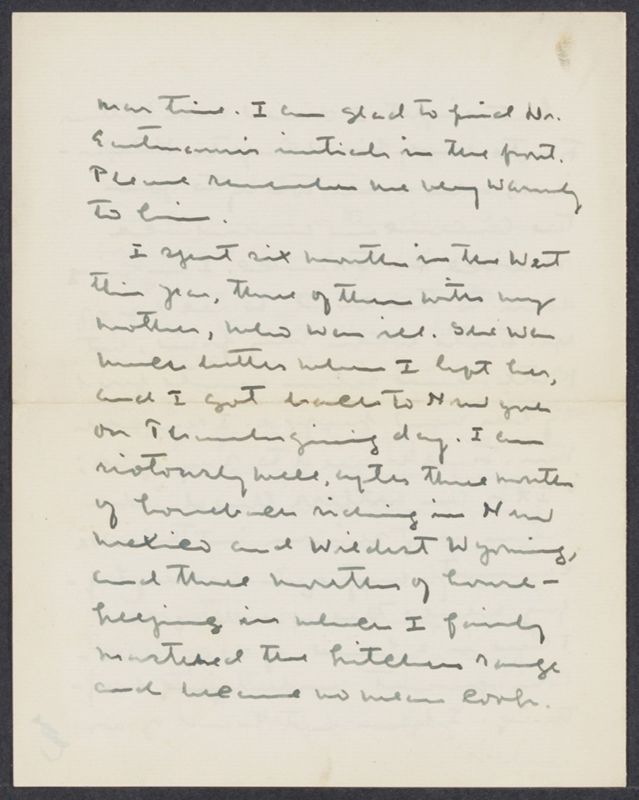 mas time. I am glad to find Dr.
Eastman's initials in the front.
Please remember me very warmly
to him.
I spent six months in the West
this year, three of them with my
mother, who was ill. She was
much better when I left her,
and I got back to New York
on Thanksgiving day. I am
riotously well, after three months
of horseback riding in New
Mexico and Wildest Wyoming,
and three months of house-
keeping in which I fairly
mastered the kitchen range
and became no mean cook.